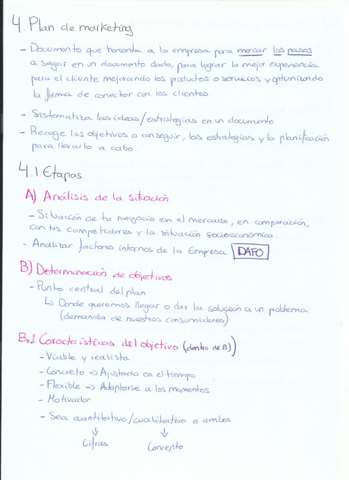 4. Plan de marketing
- Documento que          a la empresa para marcar los pasos
a seguir en un documento dado, para lograr la mejor experiencia
para el cliente mejorando los productos o servicios y optimizando
la forma de conectar con los clientes.
- Sistematiza las ideas/estrategias en un documento
- Recoge los objetivos a conseguir, las estrategias y la planificación
para llevarlo a cabo.
4.1 Etapas
A) Análisis de la situación
- Situación de tu negocio en el mercado, en comparación,
con tus competidores y la situación socioeconómica.
- Analizar factores internos de la Empresa DAFO
B) Determinación de objetivos
- Punto central del plan
↳ Donde queremos llegar o dar la solución a un problema
(demanda de nuestros consumidores)
B.1 Características del objetivo (dentro de B)
- Viable y realista
- Concreto => Ajustado en el tiempo
- Flexible => Adaptarse a los momentos
- Motivador
- Sea cuantitativo/cualitativo o ambos
Cifras Concepto